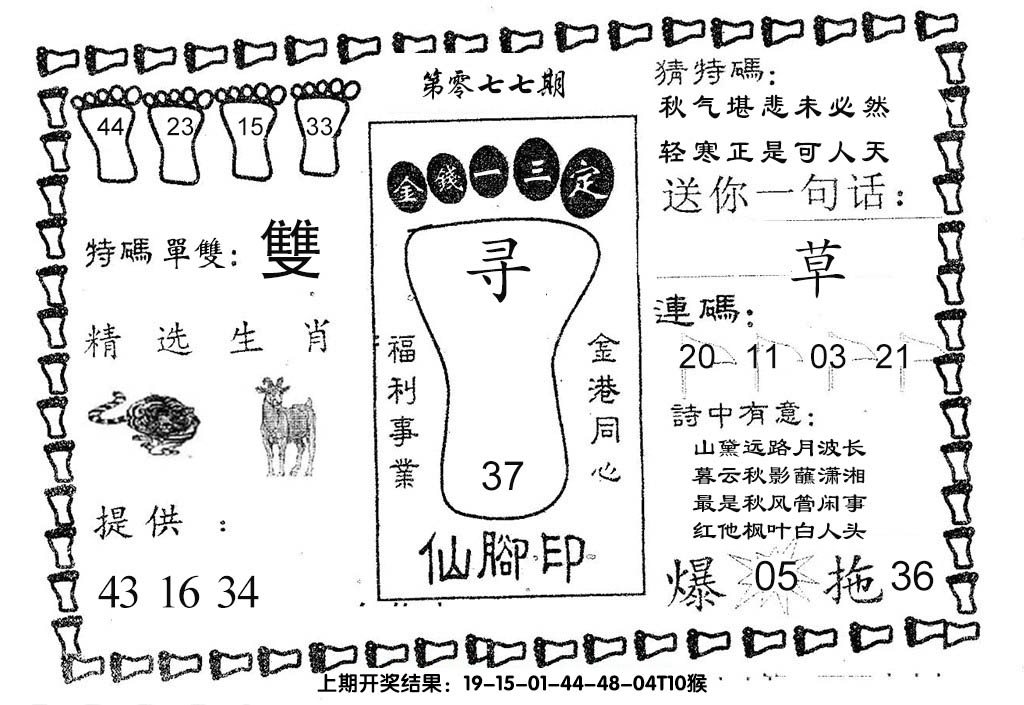 第零七七期
44 23 15 33
特碼單雙：雙
精选生肖
提供：
43 16 34
金錢一三定
寻
福利事業
金港同心
37
仙腳印
猜特碼：
秋气堪悲未必然
轻寒正是可人天
送你一句话：
草
連碼：
20 11 03 21
詩中有意：
山黛远路月波长
暮云秋影蘸潇湘
最是秋风管闲事
红他枫叶白人头
爆 05 拖 36
上期开奖结果：19-15-01-44-48-04T10猴